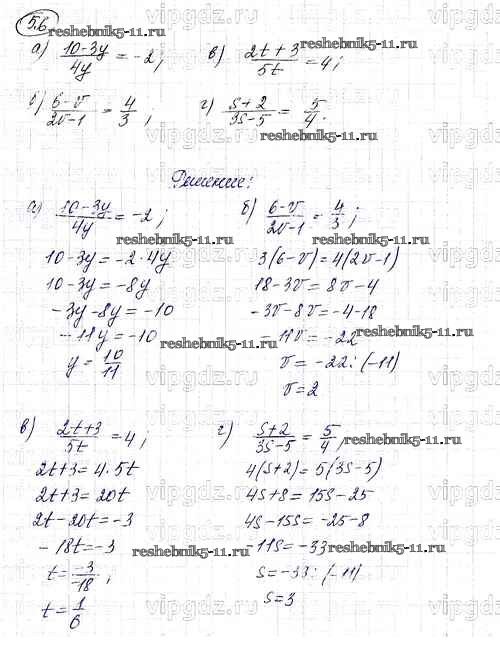 56
а) (10-3y)/(4y) = -2; в) (2t+3)/(5t) = 4;
б) (6-v)/(2v-1) = 4/3; г) (s+2)/(3s-5) = 5/4.
Решение:
а) (10-3y)/(4y) = -2; б) (6-v)/(2v-1) = 4/3;
10-3y = -2·4y 3(6-v) = 4(2v-1)
10-3y = -8y 18-3v = 8v-4
-3y-8y = -10 -3v-8v = -4-18
-11y = -10 -11v = -22
y = 10/11 v = -22:(-11)
v = 2
в) (2t+3)/(5t) = 4; г) (s+2)/(3s-5) = 5/4;
2t+3 = 4·5t 4(s+2) = 5(3s-5)
2t+3 = 20t 4s+8 = 15s-25
2t-20t = -3 4s-15s = -25-8
-18t = -3 -11s = -33
t = -3/-18; s = -33:(-11)
t = 1/6 s = 3
reshebnik5-11.ru
vipgdz.ru